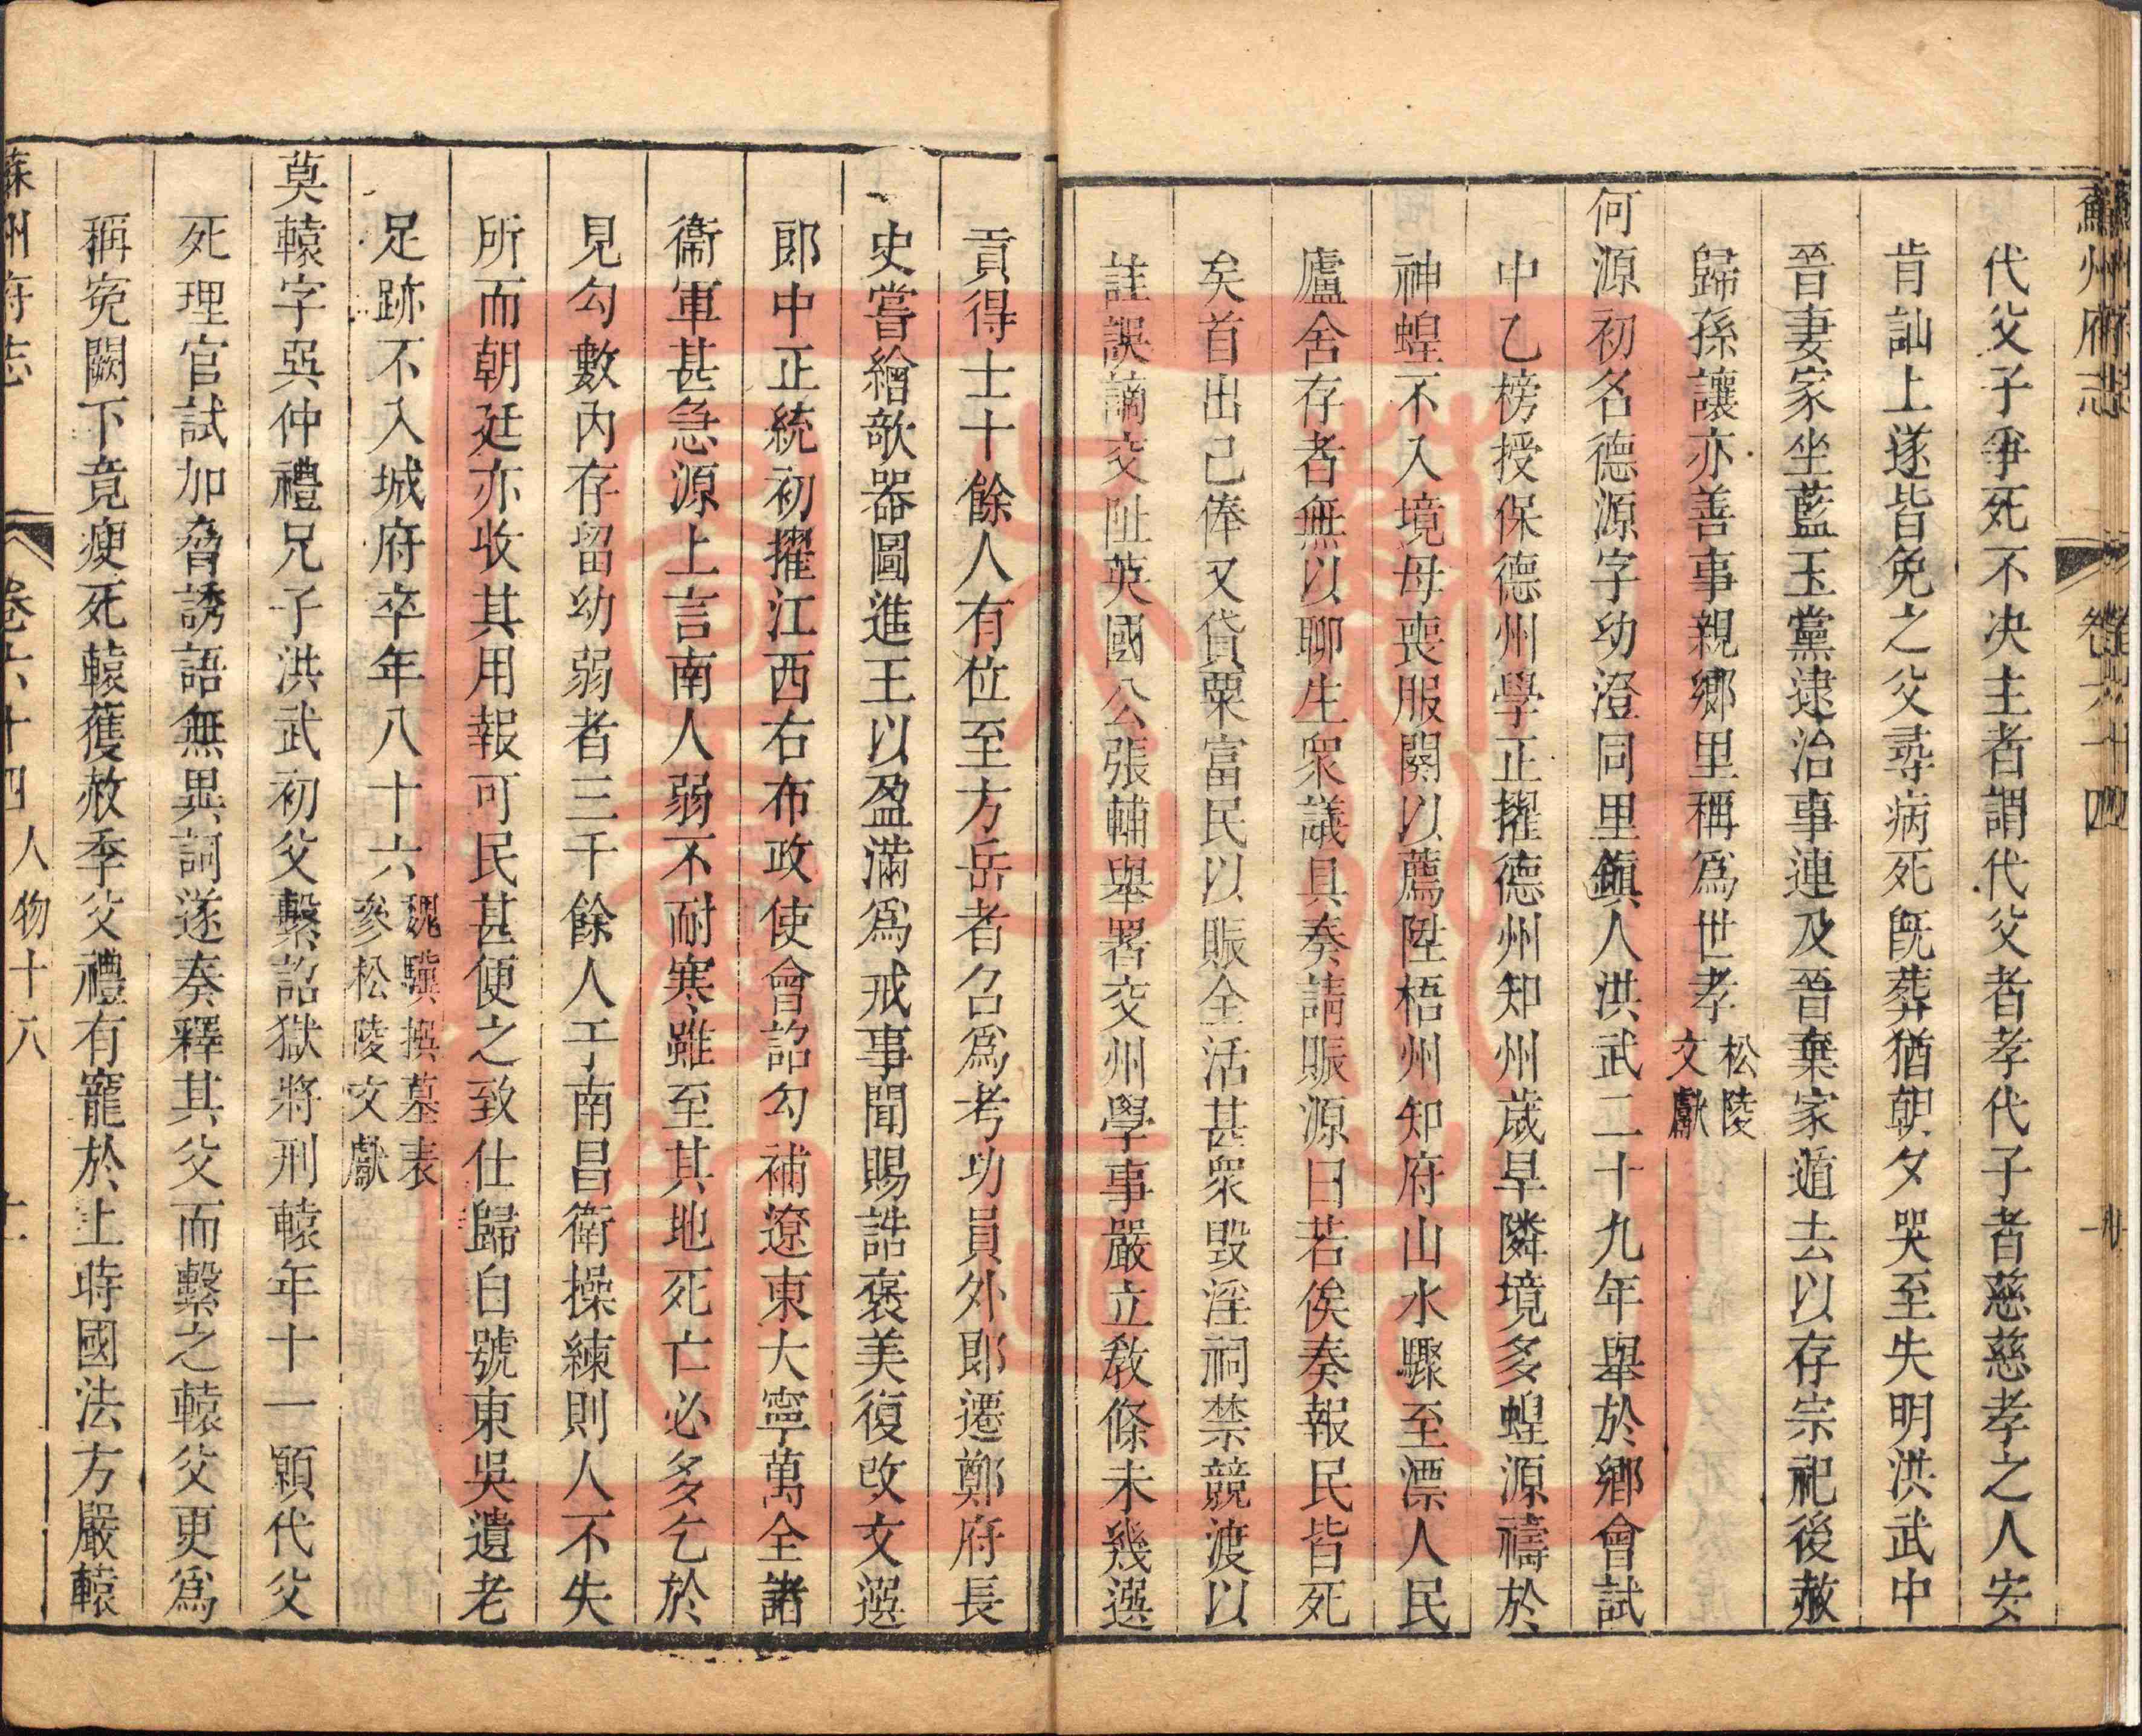 蘇州府志　卷六十四　九
代父子爭死不决主者謂代父者孝代子者慈慈孝之人安
肯訕上遂皆免之父尋病死旣葬猶朝夕哭至失明洪武中
晉妻家坐藍玉黨逮治事連及晉棄家遁去以存宗祀後赦
歸孫讓亦善事親鄉里稱爲世孝松陵文獻
何源初名德源字幼澄同里鎮人洪武二十九年舉於鄉會試
中乙榜授保德州學正擢德州知州歲旱隣境多蝗源禱於
神蝗不入境母喪服闋以薦陞梧州知府山水驟至漂人民
廬舍存者無以聊生衆議具奏請賑源曰若俟奏報民皆死
矣首出己俸又貸粟富民以賑全活甚衆毀淫祠禁競渡以
詿誤謫交阯英國公張輔舉署交州學事嚴立敎條未幾選
貢得士十餘人有位至方岳者召爲考功員外郎遷鄭府長
史嘗繪欹器圖進王以盈滿爲戒事聞賜誥褒美復改文選
郎中正統初擢江西右布政使會詔勾補遼東大寧萬全諸
衞軍甚急源上言南人弱不耐寒雖至其地死亡必多乞於
見勾數內存留幼弱者三千餘人于南昌衛操練則人不失
所而朝廷亦收其用報可民甚便之致仕歸自號東吳遺老
足跡不入城府卒年八十六魏驥撰墓表參松陵文獻
莫轅字巽仲禮兄子洪武初父繫詔獄將刑轅年十一願代父
死理官試加脅誘語無異詞遂奏釋其父而繫之轅父更爲
稱寃闕下竟瘐死轅獲赦季父禮有寵於上時國法方嚴轅
蘇州府志　卷六十四　人物十八